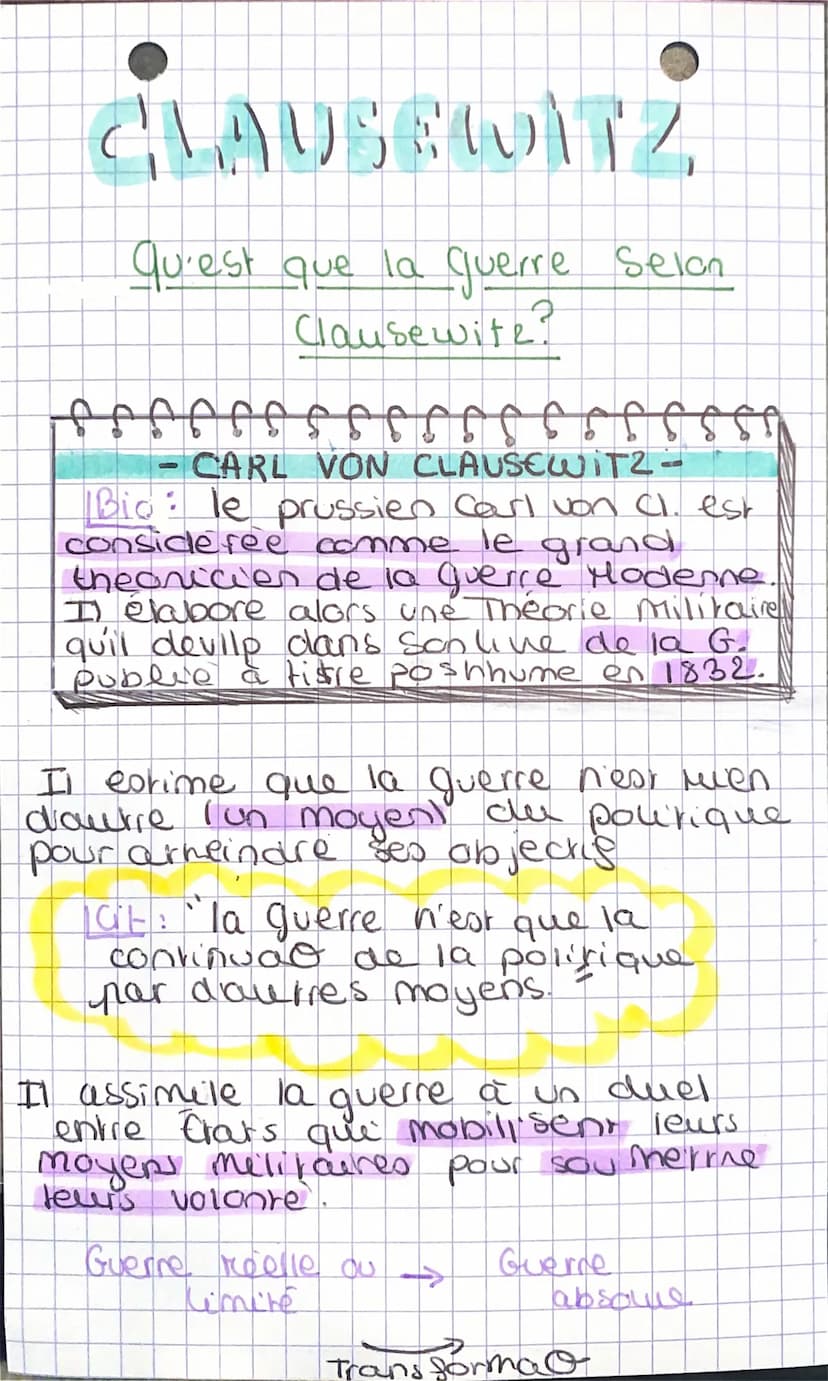 CLAUSEWITZ
Qu'est que la guerre selon
Clausewitz?
- CARL VON CLAUSEWITZ -
Bio: le prussien Carl von Cl. est
considérée comme le grand
théoricien de la guerre Moderne.
Il élabore alors une Théorie militaire
qu'il devllp dans son livre de la G.
publié à titre posthhume en 1832.
Il estime que la guerre n'est rien
d'autre (un moyen) du politique
pour atteindre ses objectis
Cit: "la guerre n'est que la
continuaO de la politique
par d'autres moyens."
Il assimile la guerre à un duel
entre États qui mobilisent leurs
moyens militaires pour soumettre
leurs volonté.
Guerre réelle ou → Guerre
limité absolue
TransformaO